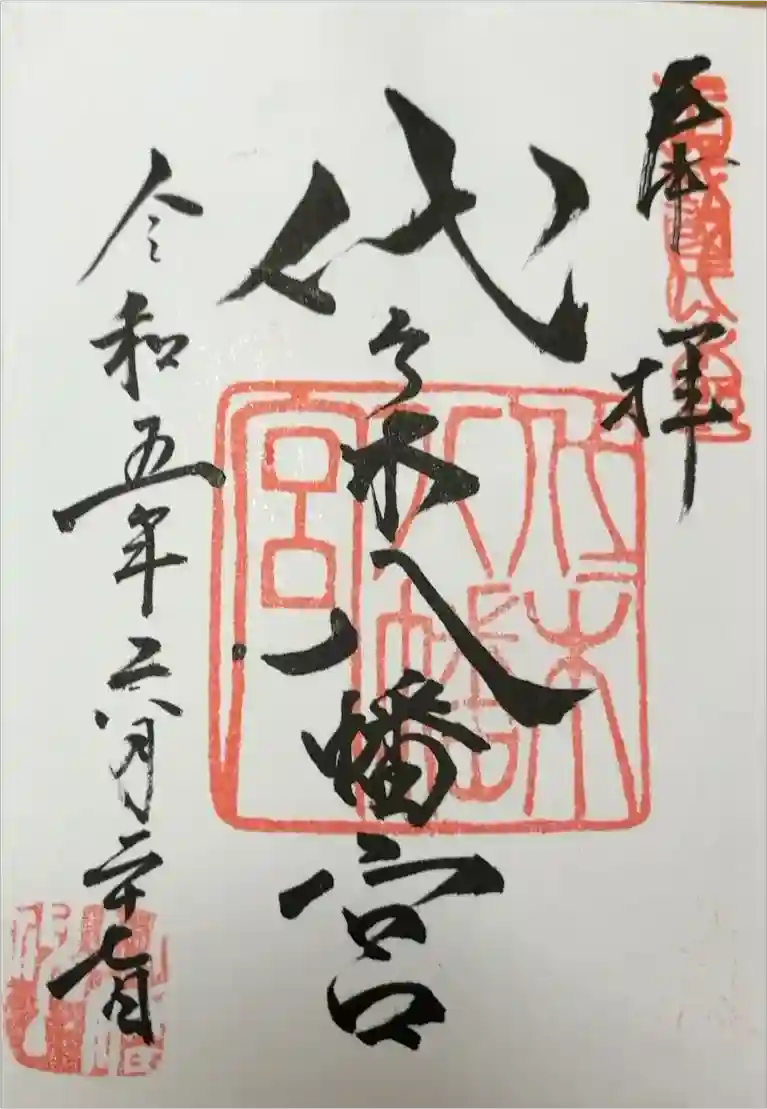 奉拝
代々木八幡宮
代々木
八幡
宮
令和五年六月二十七日